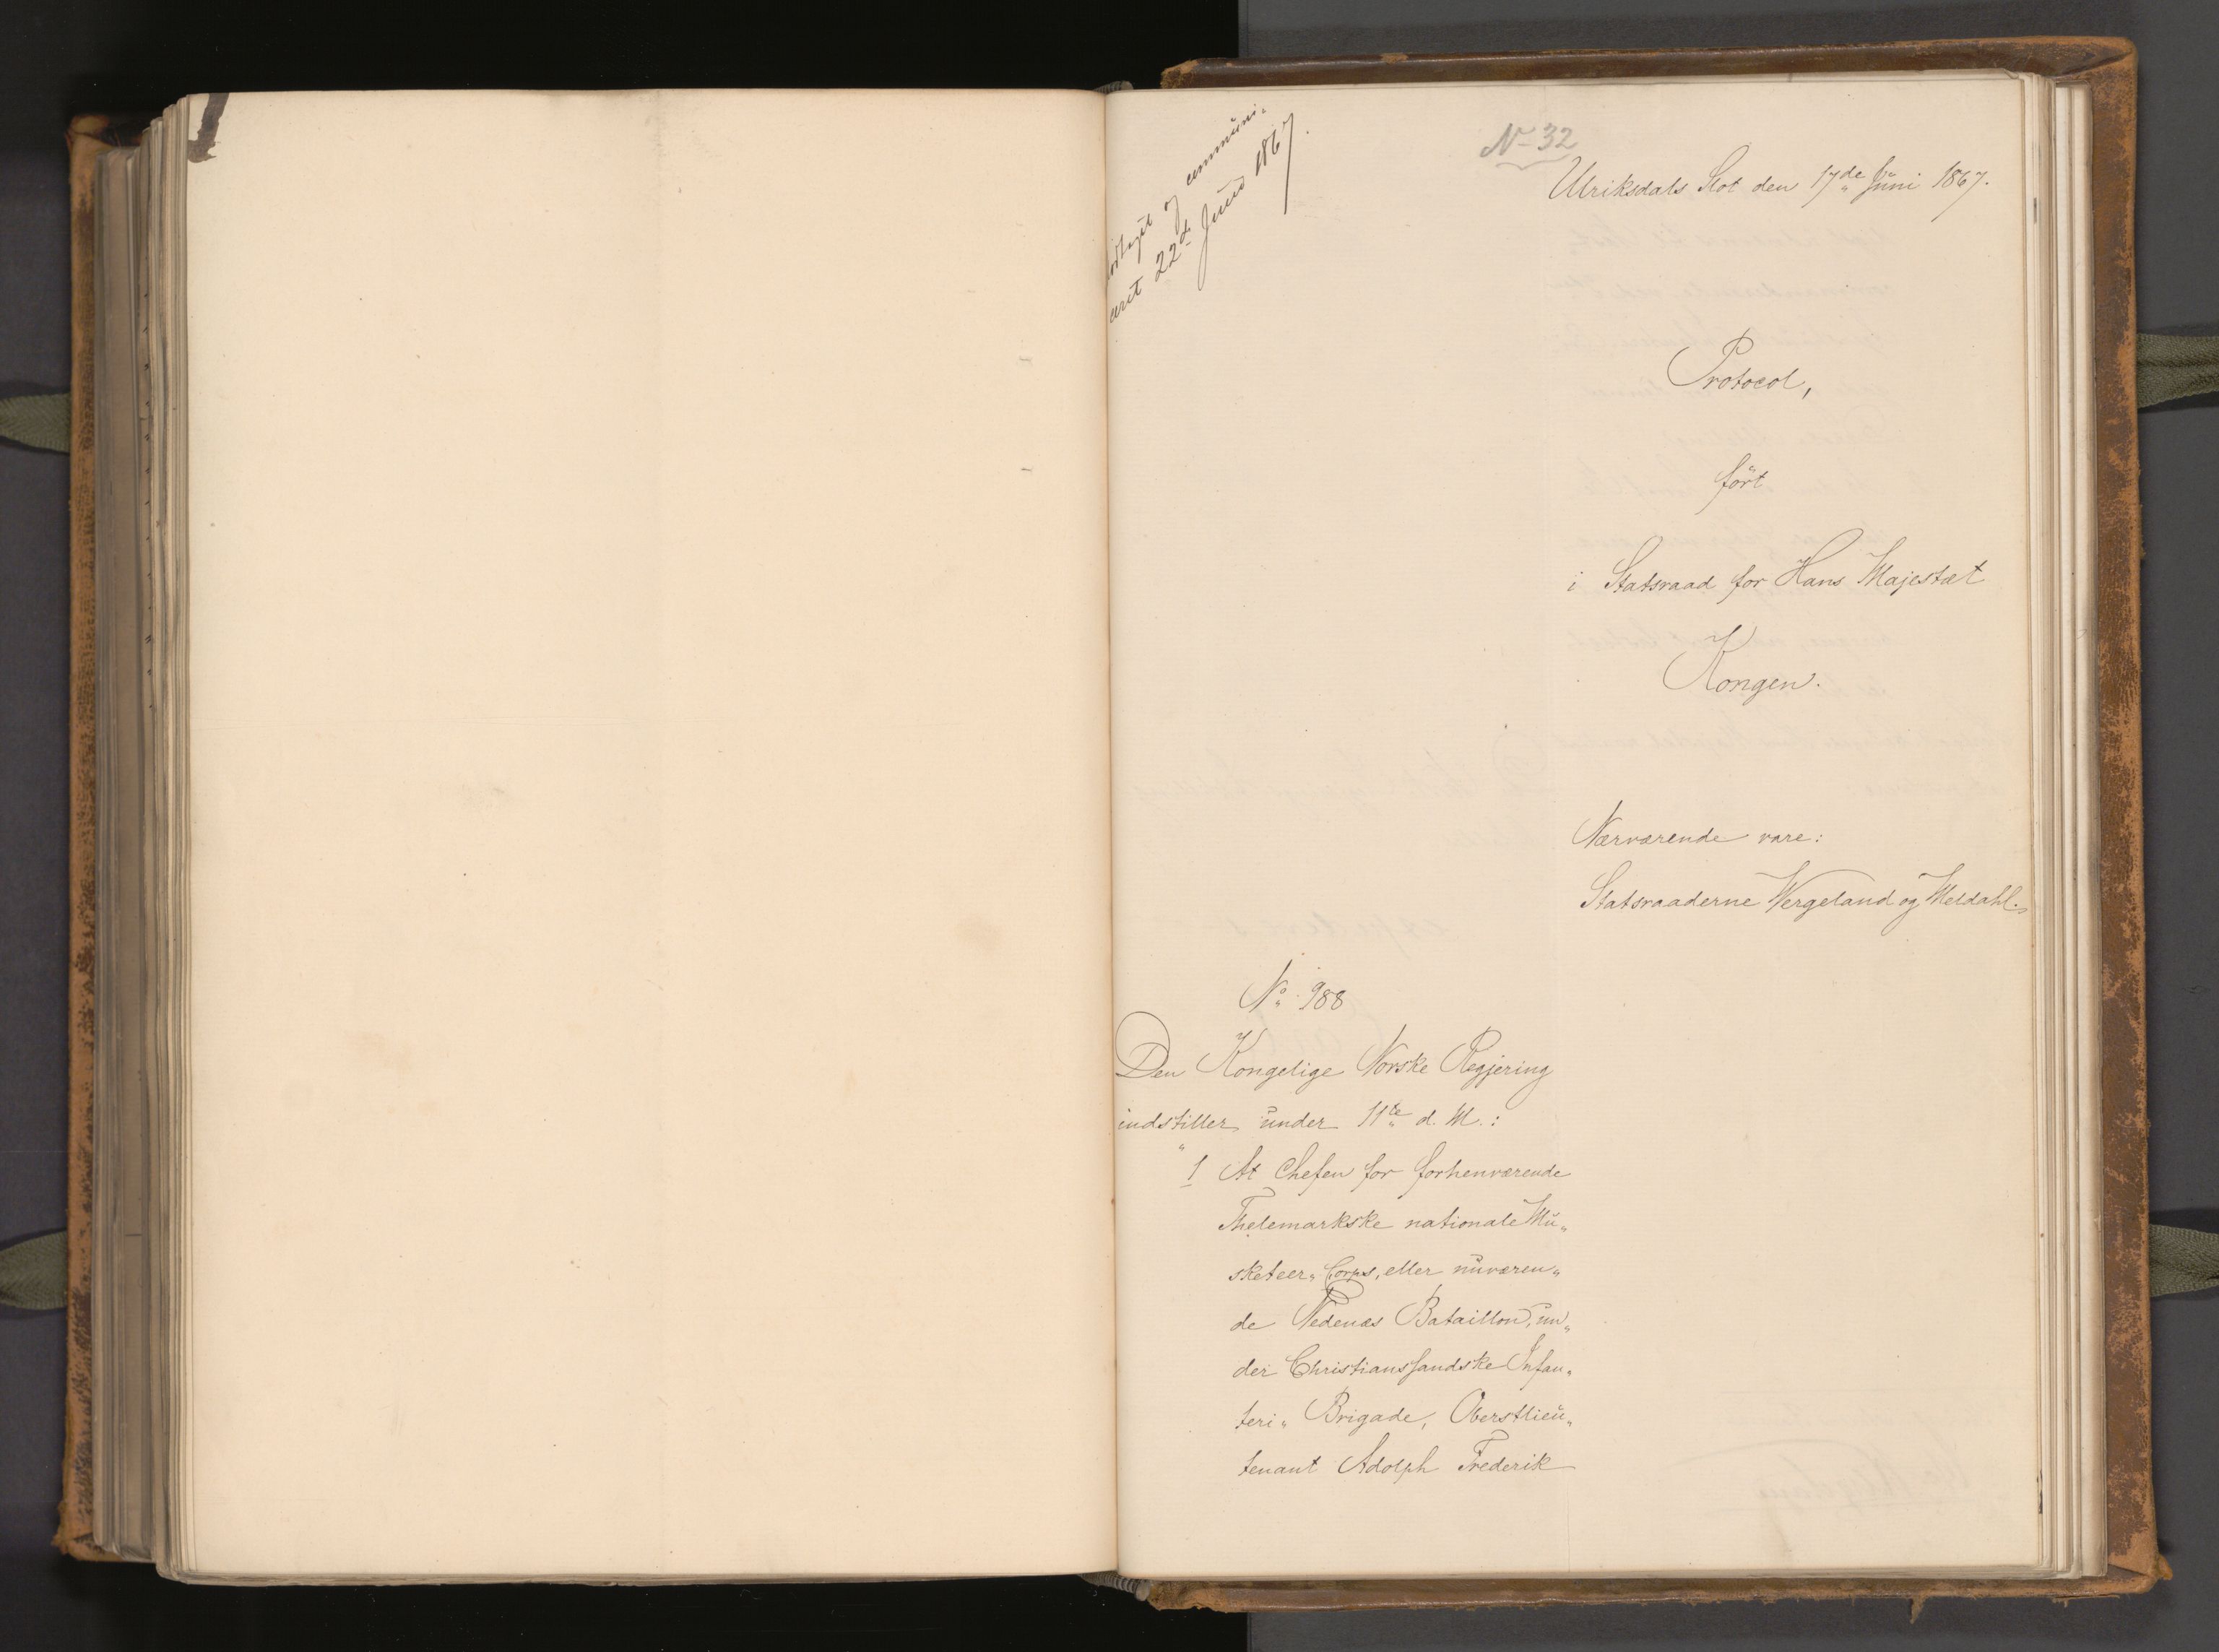 og communi-
ceret 22de Juni 1867.
No 32
Ulriksdals Slot den 17de Juni 1867.
Protocol,
ført
i Statsraad for Hans Majestæt
Kongen.
Nærværende vare:
Statsraaderne Wergeland og Meldahl.
No 988
Den Kongelige Norske Regjering
indstiller under 11te d. M.:
1 At Chefen for forhenværende
Thelemarkske nationale Mu„
sketeer„ Corps, eller nuværen„
de Nedenæs Bataillon, un„
der Christianssandske Infan„
teri„ Brigade, Oberstlieu„
tenant Adolph Frederik